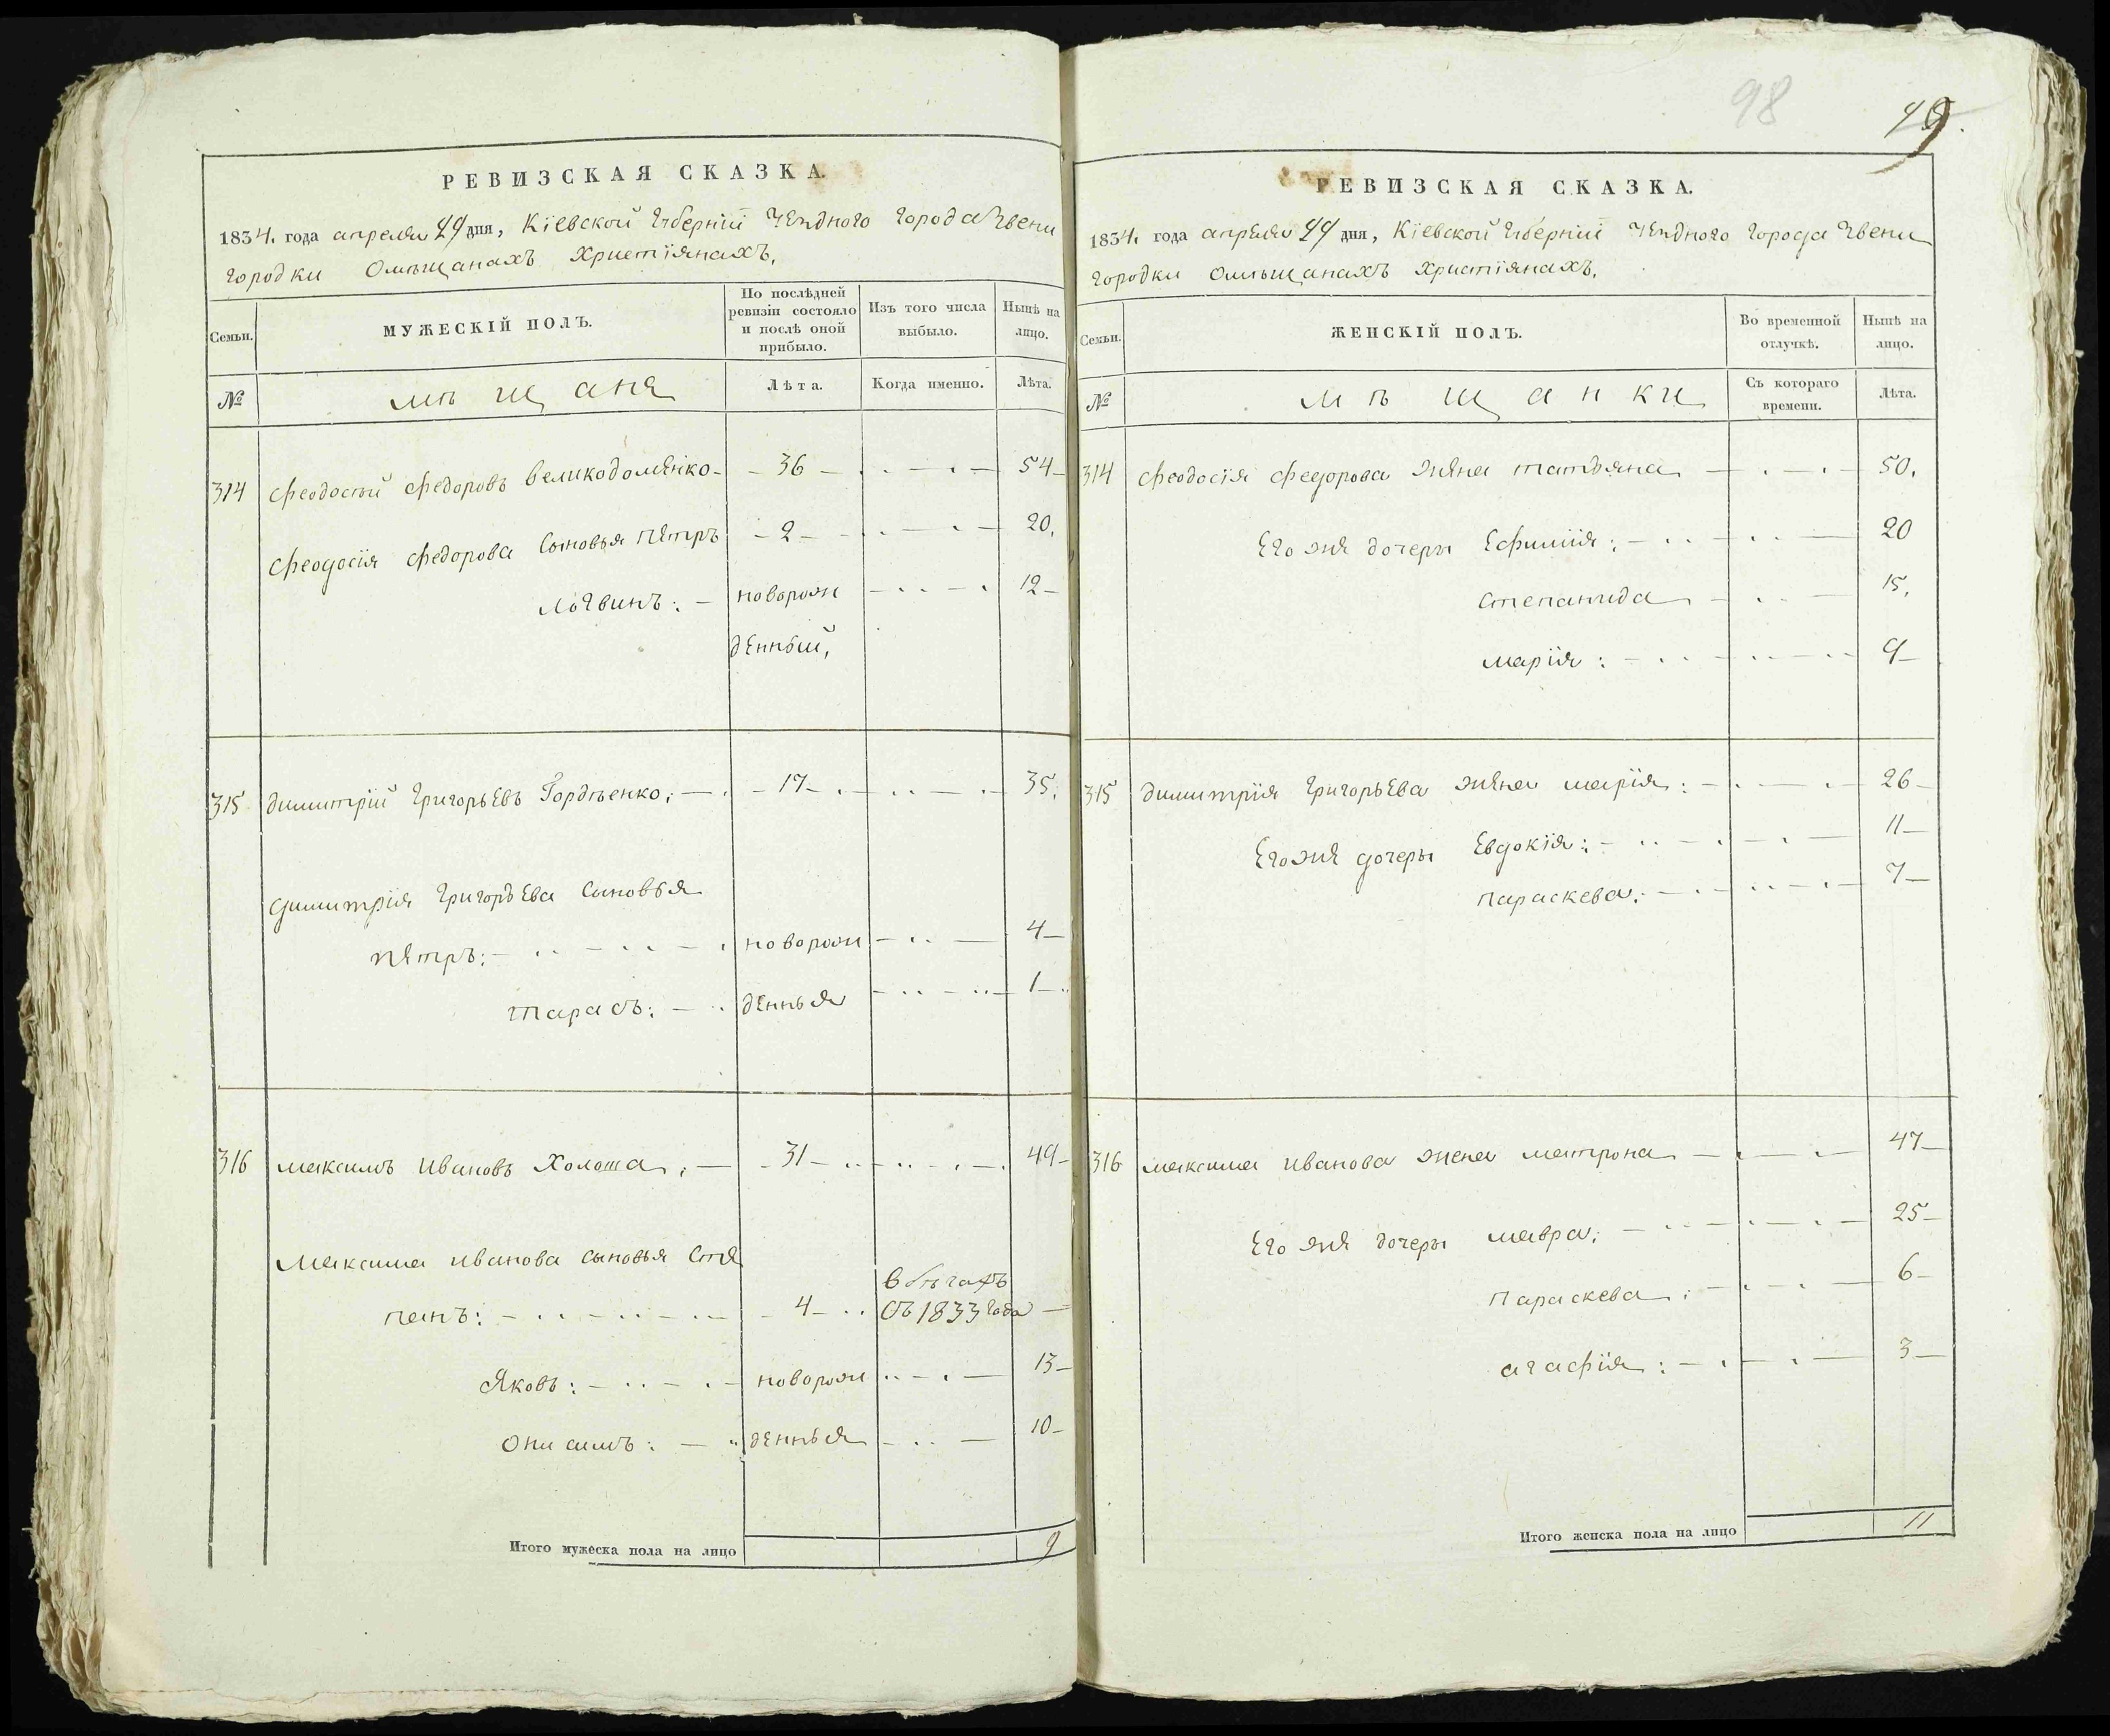 РЕВИЗСКАЯ СКАЗКА.
1834. года апреля 24 дня, Кіевской Губерніи Уѣздного Города Звени
городки Омѣщанахъ Христіянахъ,
Семьи.
МУЖЕСКІЙ ПОЛЪ.
По послѣдней ревизіи состояло и послѣ оной прибыло.
Изъ того числа выбыло.
Нынѣ на лицо.
№ мѣщане Лѣта. Когда именно. Лѣта.
314 Феодосій Федоровъ Великодоменко - 36 - 54
Феодосія Федорова Сыновья Петръ - 2 - 20.
новорож 12
денный,
315 Димитрій Григорьевъ Гордѣенко: - 17 - 35.
Димитрія Григорьева Сыновья
Петръ: новорож 4
Тарасъ: денныя 1
316 Максимъ Ивановъ Холоша, - 31 - 49
Максима Иванова Сыновья Сте
панъ: 4 вбѣгахъ
съ 1833 года
Яковъ: новорож 13
Онисимъ: денныя 10
Итого мужеска пола на лицо 9
98
РЕВИЗСКАЯ СКАЗКА.
1834. года апреля 24 дня, Кіевской Губерніи Уѣздного Города Звени
городки Омѣщанахъ Христіянахъ.
Семьи.
ЖЕНСКІЙ ПОЛЪ.
Во временной отлучкѣ.
Нынѣ на лицо.
№ мѣщанки Съ котораго времени. Лѣта.
314 Феодосія Федорова Жена татьяна 50.
Его же дочеры Ефимія: 20
Степанида 15.
Марія: 9
315 Димитрія Григорьева Жена марія: 26
Его же дочеры Евдокія: 11
Параскева: 7
316 Максима Иванова жена матрона 47
Его же дочеры мавра: 25
Параскева: 6
Агафія: 3
Итого женска пола на лицо 11